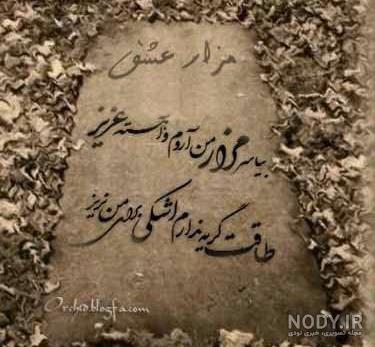 مزار عشق
بیا سر مزار من آروم و آهسته عزیز
طاقت گریه ندارم اشکی برای من نریز
Orchid.blogfa.com
NODY.IR
مجله تصویری، خبری نودی